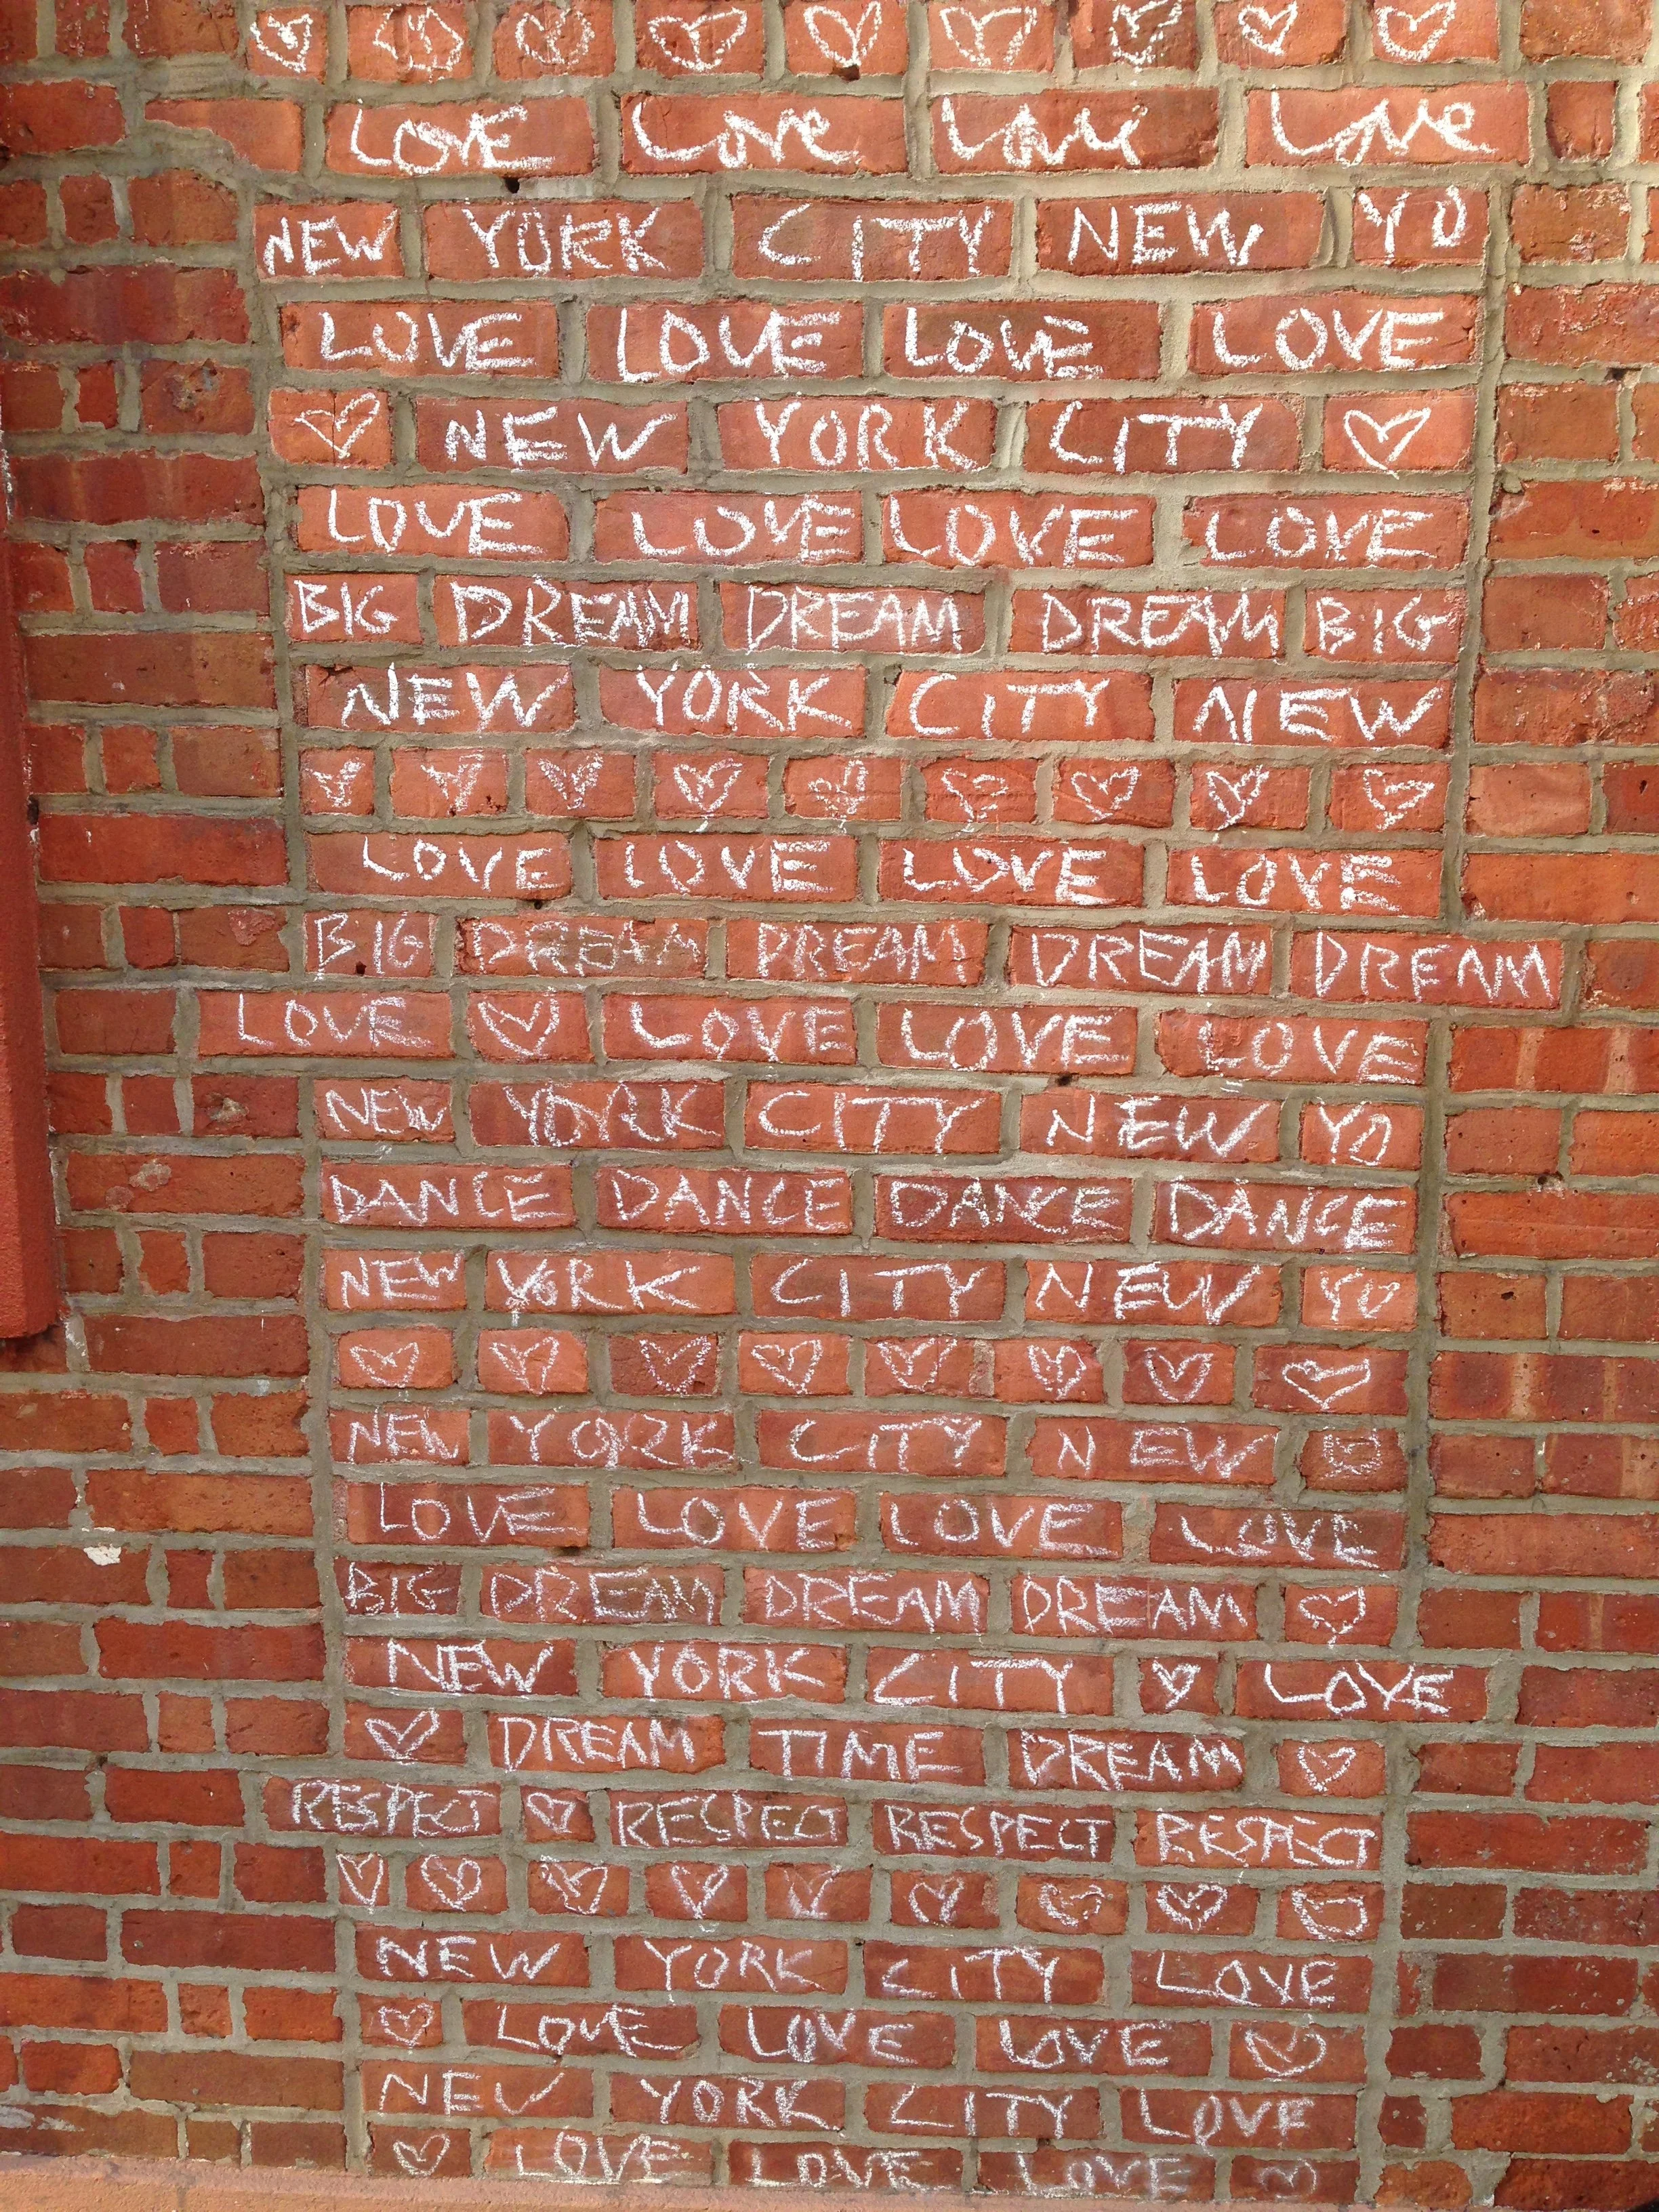 LOVE Love Love Love
NEW YORK CITY NEW YO
LOVE LOVE LOVE LOVE
NEW YORK CITY
LOVE LOVE LOVE LOVE
BIG DREAM DREAM DREAM BIG
NEW YORK CITY NEW
LOVE LOVE LOVE LOVE
BIG DREAM DREAM DREAM DREAM
LOVE LOVE LOVE LOVE
NEW YORK CITY NEW YO
DANCE DANCE DANCE DANCE
NEW YORK CITY NEW YO
NEW YORK CITY NEW
LOVE LOVE LOVE LOVE
BIG DREAM DREAM DREAM
NEW YORK CITY LOVE
DREAM TIME DREAM
RESPECT RESPECT RESPECT RESPECT
NEW YORK CITY LOVE
LOVE LOVE LOVE
NEW YORK CITY LOVE
LOVE LOVE LOVE